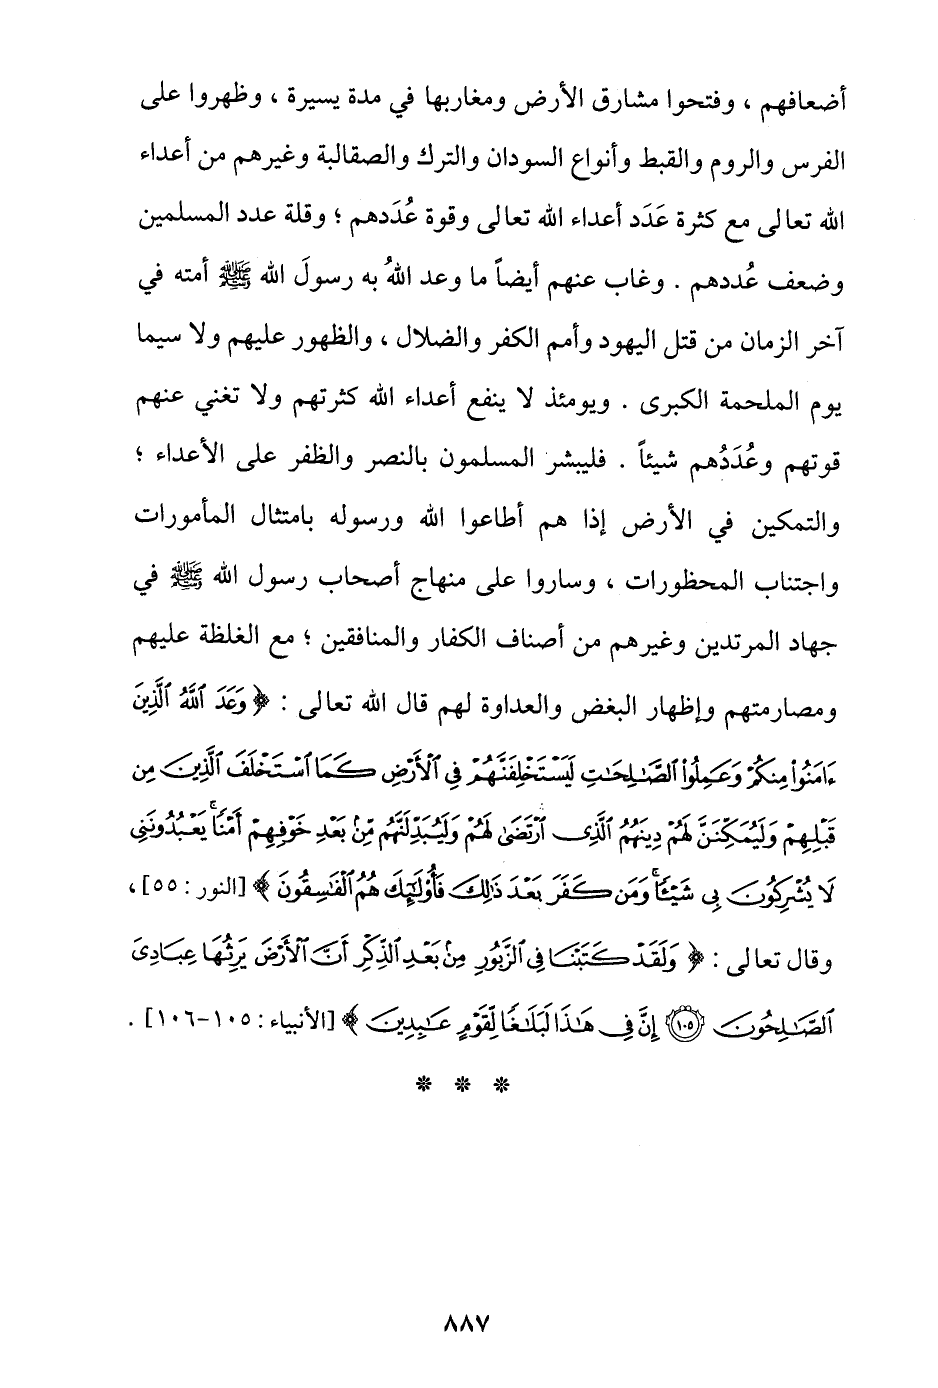 أضعافهم ، وفتحوا مشارق الأرض ومغاربها في مدة يسيرة ، وظهروا على
الفرس والروم والقبط وأنواع السودان والترك والصقالبة وغيرهم من أعداء
الله تعالى مع كثرة عَدَد أعداء الله تعالى وقوة عُدَدهم ؛ وقلة عدد المسلمين
وضعف عُددهم . وغاب عنهم أيضاً ما وعد اللهُ به رسولَ الله ﷺ أمته في
آخر الزمان من قتل اليهود وأمم الكفر والضلال ، والظهور عليهم ولا سيما
يوم الملحمة الكبرى . ويومئذ لا ينفع أعداء الله كثرتهم ولا تغني عنهم
قوتهم وعُدَدُهم شيئاً . فليبشر المسلمون بالنصر والظفر على الأعداء ؛
والتمكين في الأرض إذا هم أطاعوا الله ورسوله بامتثال المأمورات
واجتناب المحظورات ، وساروا على منهاج أصحاب رسول الله ﷺ في
جهاد المرتدين وغيرهم من أصناف الكفار والمنافقين ؛ مع الغلظة عليهم
ومصارمتهم وإظهار البغض والعداوة لهم قال الله تعالى : ﴿ وَعَدَ ٱللَّهُ ٱلَّذِينَ
ءَامَنُوا۟ مِنكُمْ وَعَمِلُوا۟ ٱلصَّـٰلِحَـٰتِ لَيَسْتَخْلِفَنَّهُمْ فِى ٱلْأَرْضِ كَمَا ٱسْتَخْلَفَ ٱلَّذِينَ مِن
قَبْلِهِمْ وَلَيُمَكِّنَنَّ لَهُمْ دِينَهُمُ ٱلَّذِى ٱرْتَضَىٰ لَهُمْ وَلَيُبَدِّلَنَّهُم مِّنۢ بَعْدِ خَوْفِهِمْ أَمْنًا ۚ يَعْبُدُونَنِى
لَا يُشْرِكُونَ بِى شَيْـًٔا ۚ وَمَن كَفَرَ بَعْدَ ذَٰلِكَ فَأُو۟لَـٰٓئِكَ هُمُ ٱلْفَـٰسِقُونَ ﴾ [النور : ٥٥] ،
وقال تعالى : ﴿ وَلَقَدْ كَتَبْنَا فِى ٱلزَّبُورِ مِنۢ بَعْدِ ٱلذِّكْرِ أَنَّ ٱلْأَرْضَ يَرِثُهَا عِبَادِىَ
ٱلصَّـٰلِحُونَ ١٠٥ إِنَّ فِى هَـٰذَا لَبَلَـٰغًا لِّقَوْمٍ عَـٰبِدِينَ ﴾ [الأنبياء : ١٠٥-١٠٦] .
* * *
٨٨٧